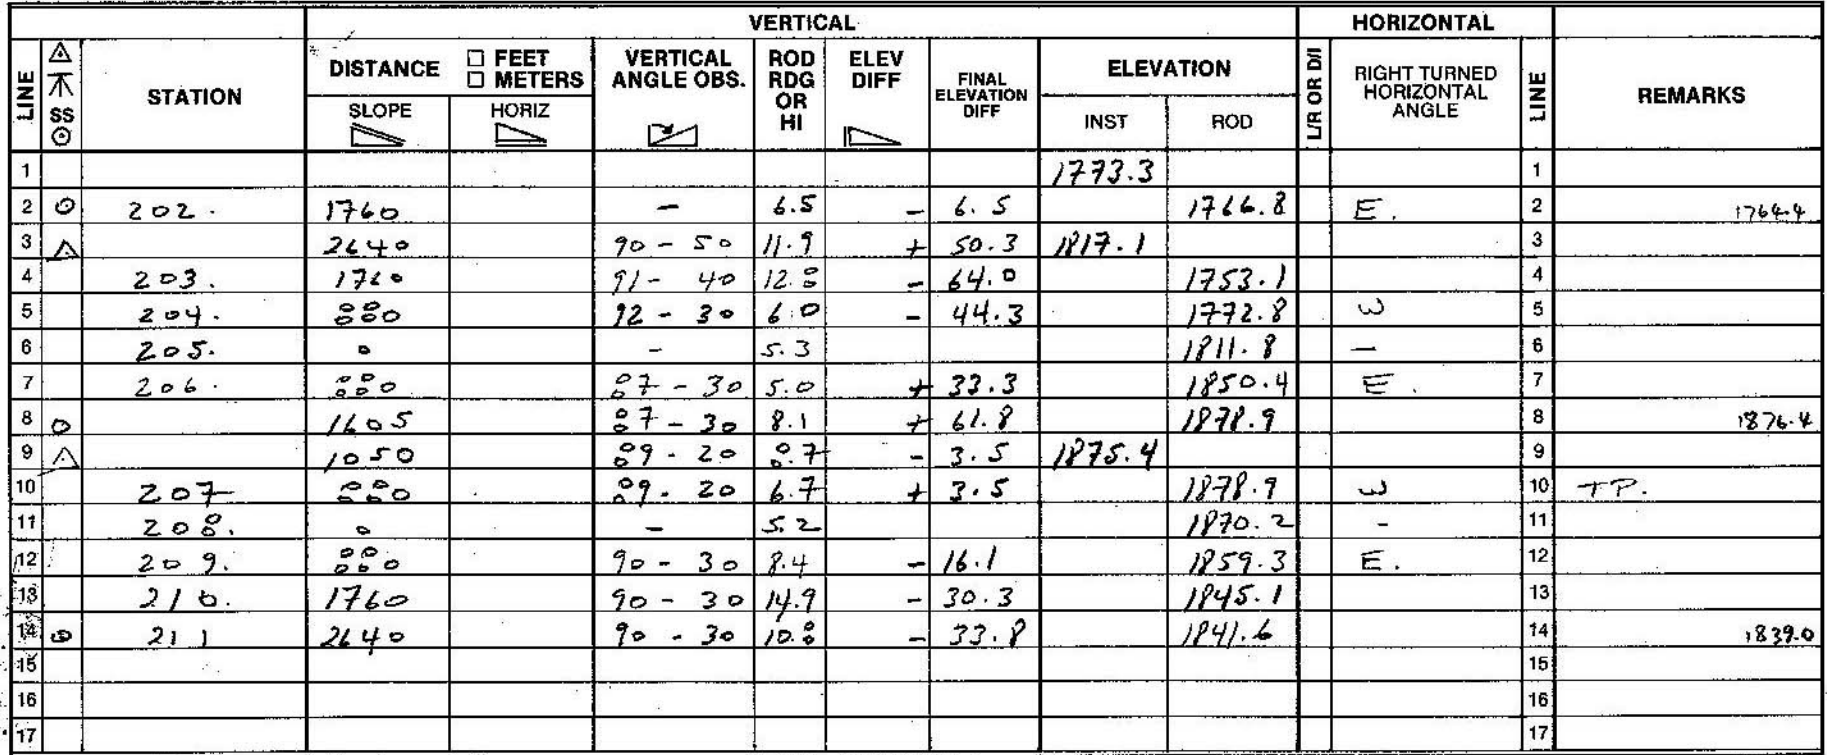 VERTICAL HORIZONTAL
LINE SS STATION DISTANCE FEET METERS VERTICAL ANGLE OBS. ROD RDG OR HI ELEV DIFF FINAL ELEVATION DIFF ELEVATION L/R OR D/I RIGHT TURNED HORIZONTAL ANGLE LINE REMARKS
SLOPE HORIZ INST ROD
1 1773.3 1
2 202. 1760 — 6.5 - 6.5 1766.8 E. 2 1764.4
3 2640 90 - 50 11.9 + 50.3 1817.1 3
4 203. 1760 91 - 40 12.8 - 64.0 1753.1 4
5 204. 880 92 - 30 6.0 - 44.3 1772.8 W 5
6 205. 0 - 5.3 1811.8 — 6
7 206. 880 87 - 30 5.0 + 33.3 1850.4 E. 7
8 1605 87 - 30 8.1 + 61.8 1878.9 8 1876.4
9 1050 89 - 20 8.7 - 3.5 1875.4 9
10 207 880 89 - 20 6.7 + 3.5 1878.9 W 10 TP.
11 208. 0 - 5.2 1870.2 - 11
12 209. 880 90 - 30 8.4 - 16.1 1859.3 E. 12
13 210. 1760 90 - 30 14.9 - 30.3 1845.1 13
14 211 2640 90 - 30 10.8 - 33.8 1841.6 14 1839.0
15 15
16 16
17 17